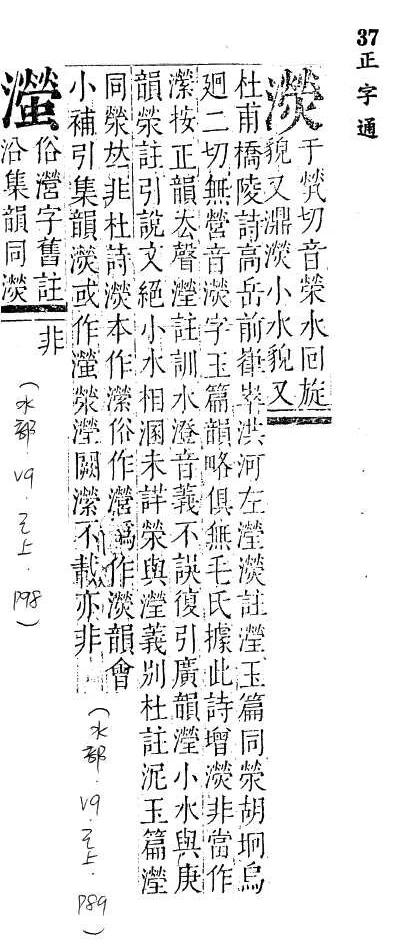 37正字通
濙
于㷀切音榮水回旋
貌又濎濙小水貌又
杜甫橋陵詩高岳前嵂崒洪河左瀅濙註瀅玉篇同滎胡坰烏
迥二切無營音濙字玉篇韻略俱無毛氏據此詩增濙非當作
瀠按正韻厺聲瀅註訓水澄音義不誤復引廣韻瀅小水與庚
韻滎註引說文絕小水相溷未詳滎與瀅義別杜註泥玉篇瀅
同滎𠀤非杜詩濙本作瀠俗作瀯譌作濙韻會
小補引集韻濙或作滎瀅闕瀠不載亦非
(水部.v9.巳上.p89)
俗瀯字舊註
沿集韻同濙
非
(水部.v9.巳上.p98)